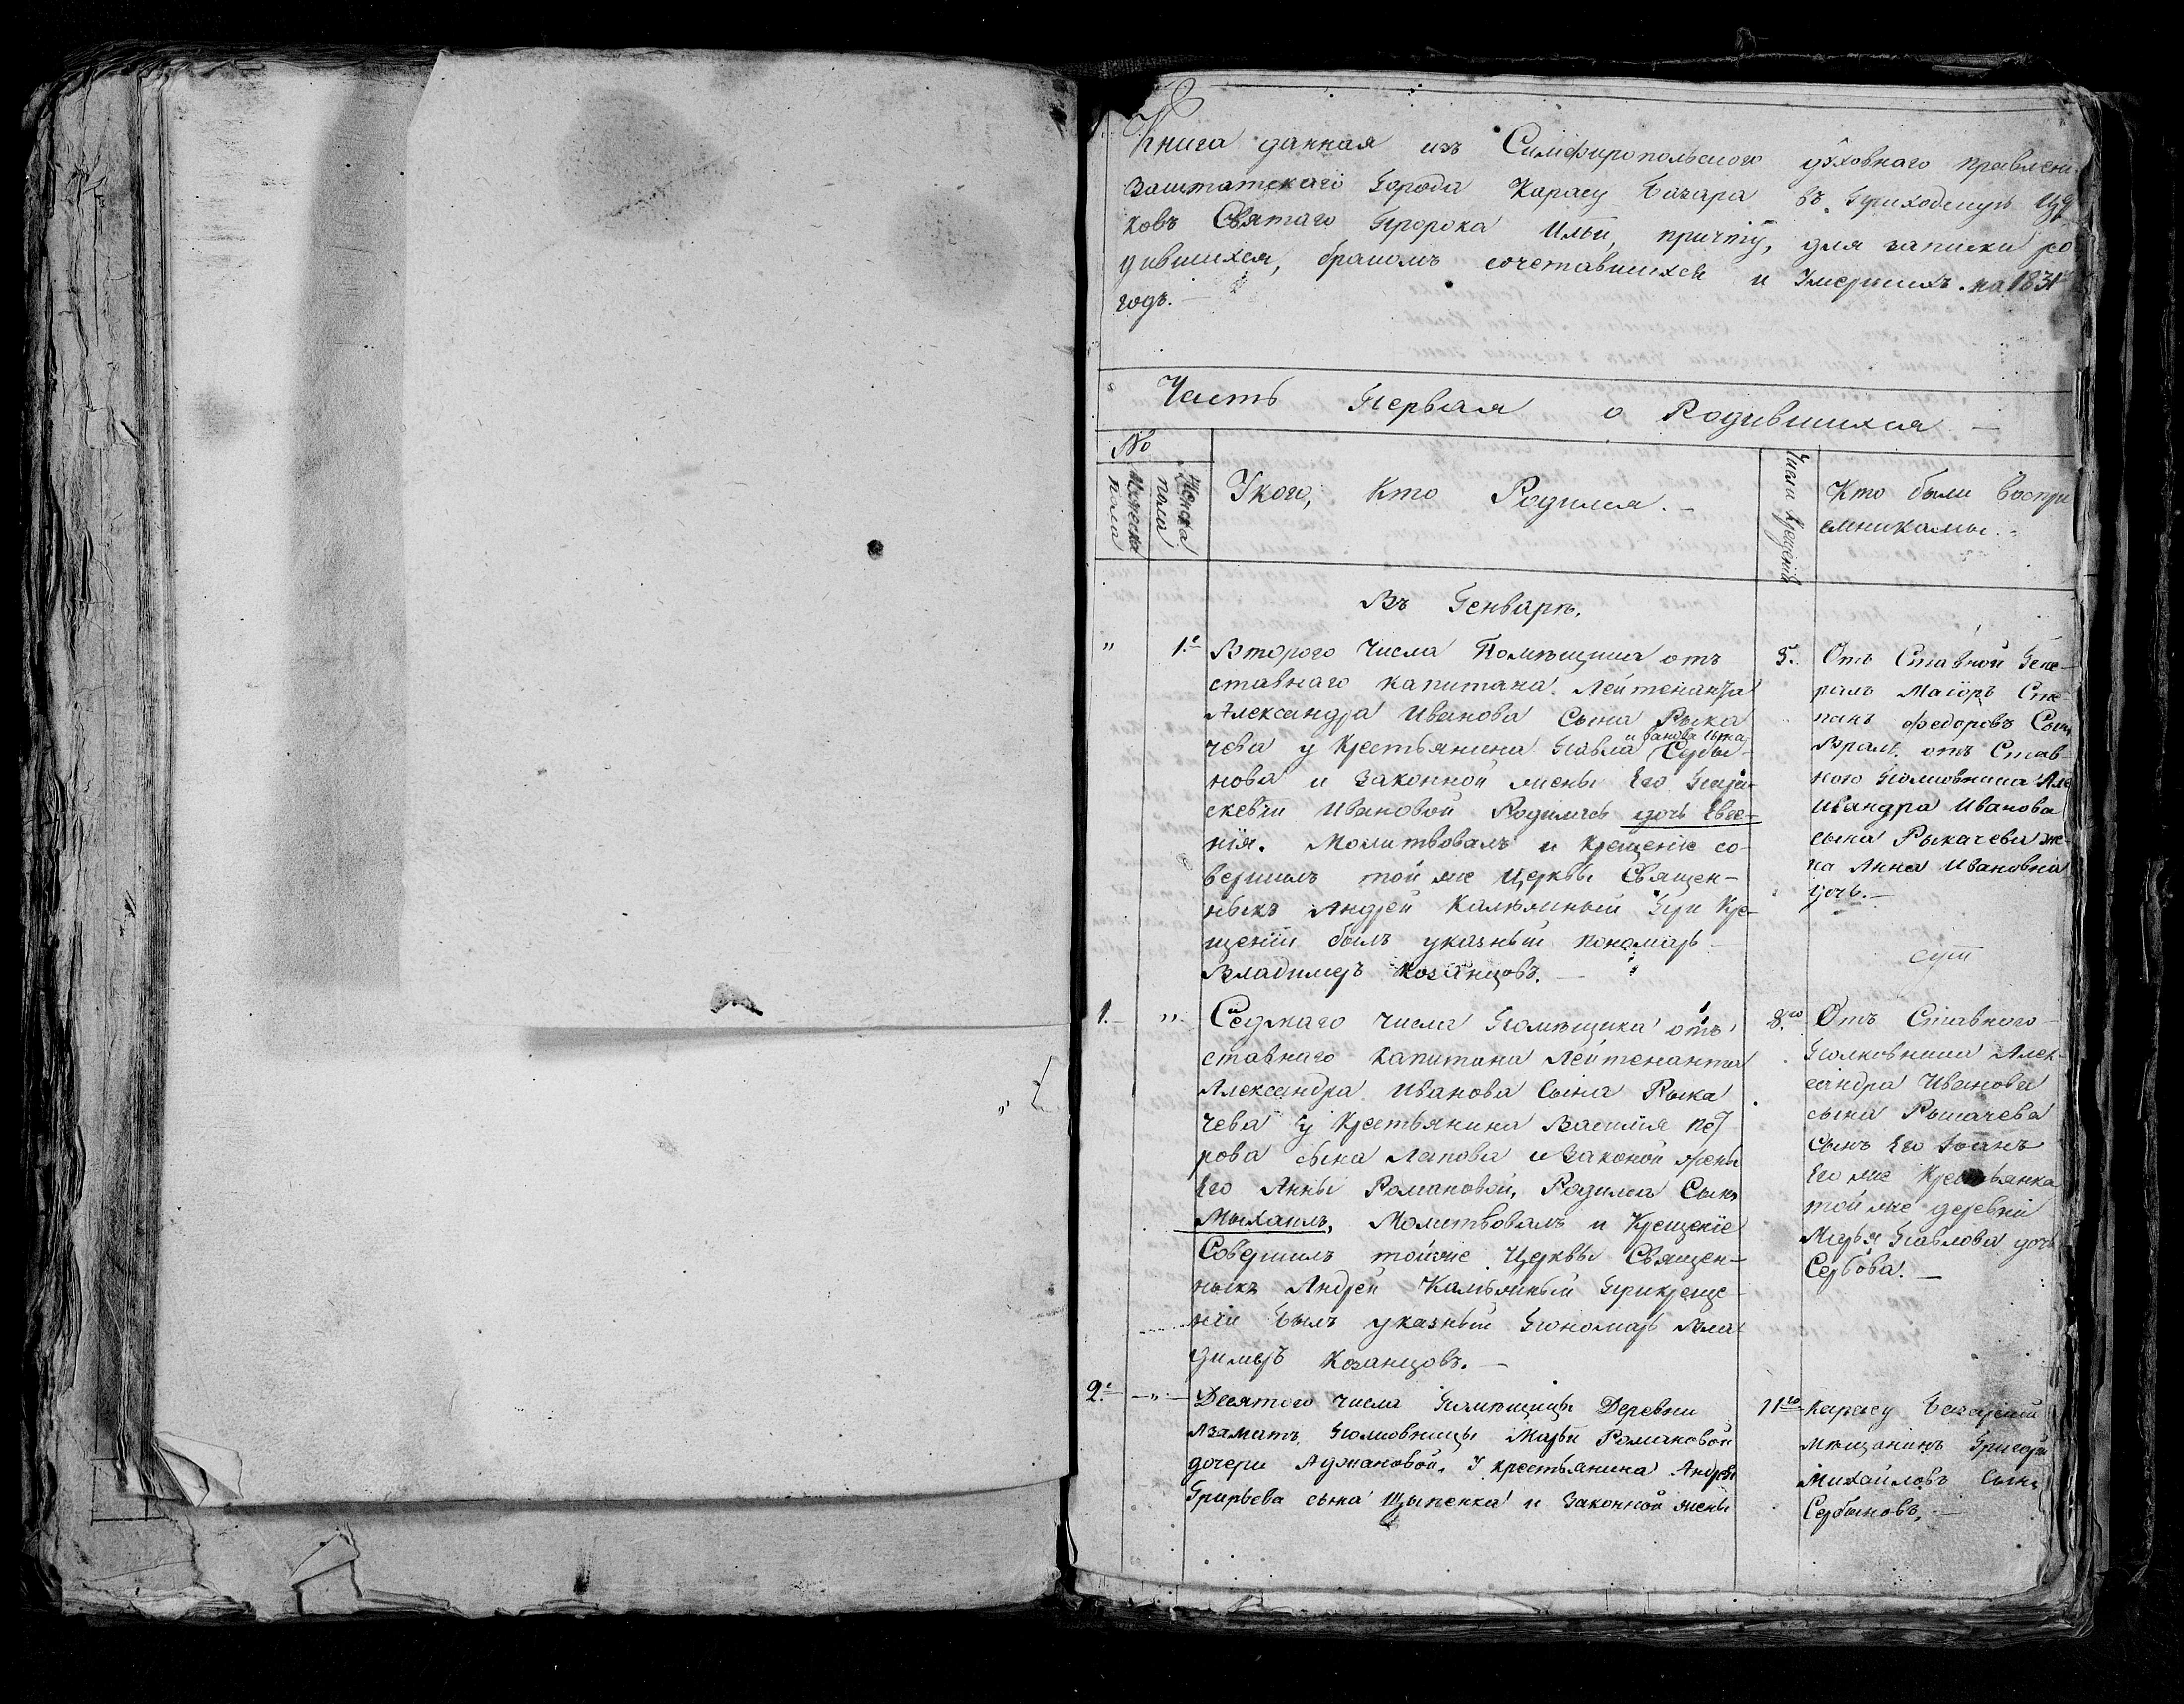 Книга данная изъ Симферопольского духовнаго правлени
Заштатнаго Города Карасу Базара въ Приходскую Цер
ковъ Святаго Пророка Ильи, причту, для записки ро
дившихся, бракомъ сочетавшихся и Умершихъ. на 1831
годъ.
Часть Первая о Родившихся
№
Мужеска пола
Женска пола
У кого, Кто Родился.
Число крещенія
Кто были Воспри
емниками.
Въ Генваръ.
" 1.
Второго Числа Помѣщика отъ
ставнаго капитана Лейтенанта
Александра Иванова Сына Рыка
чева у Крестьянина Павла Иванова сына Сербы
нова и Законной жены Его Параскевіи
скевіи Ивановой Родилась дочь Евге-
нія. Молитвовалъ и Крещеніе со-
вершилъ той же Церквы Священ-
ныкъ Андрей Калѣжный При Кре-
щеніи былъ указный пономарь
Владимеръ Козанцовъ.
5.
Отъ Ставной Гене-
ралъ Маіоръ Сте
панъ Федоровъ Сынъ
отъ Став-
ного Полковника Але
ксандра Иванова
сына Рыкачева же-
на Анна Ивановна
дочь.
1. "
Седмаго числа Помѣщика отъ
ставнаго Капитана Лейтенанта
Александра Иванова Сына Рыка
чева у Крестьянина Василія Пет
рова сына Лапова и Законой жены
Его Анны Романовой, Родился Сынъ
Мыхаилъ, Молитвовалъ и Крещеніе
Совершилъ тойже Церквы Священ-
ныкъ Андрей Калѣжный Прикреще-
ніи Былъ указный Пономарь Вла
димеръ Козанцовъ.
8.го
Отъ Ставного
Полковника Алек-
сандра Иванова
сына Рыкачева
Сынъ Его Іоанъ
Его же Крестьянка
той же деревни
Марья Павлова дочь
Сербова.
2. "
Десятого числа Помѣщицы Деревни
Азаматъ Полковницы Марьи Романовой
дочери Аджановой, У крестьянина Андрея
Григрьева сына Щыпенка и Законной жены
11го
Карасу Базарский
мѣщанинъ Григори
Михайловъ Сынъ
Сербыновъ,